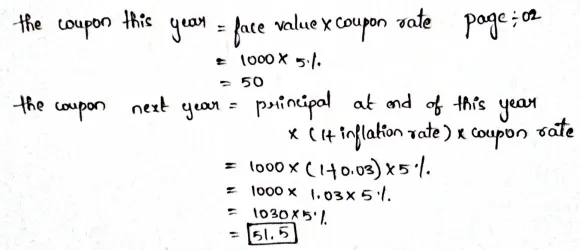 the coupon this year = face value x coupon rate page: 02
= 1000 x 5%.
= 50
the coupon next year = principal at end of this year
x (1+ inflation rate) x coupon rate
= 1000 x (1+0.03) x 5%.
= 1000 x 1.03 x 5%.
= 1030 x 5%.
= 51.5